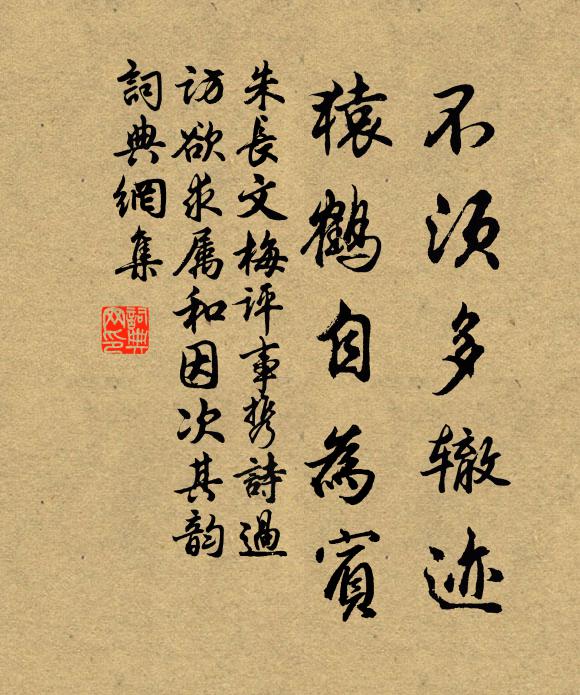 不须多辙迹
猿鹤自為賓
朱長文梅评事携詩過
访欲求属和因次其韵
詞典網集
詞典
网印